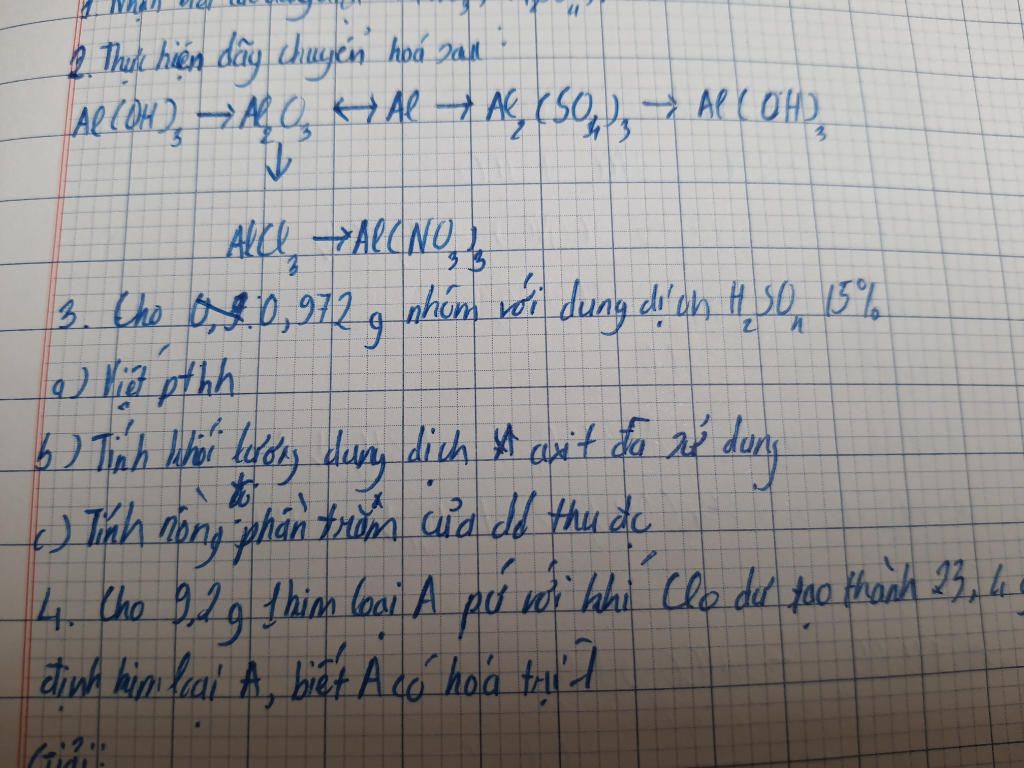 2. Thực hiện dãy chuyển hoá sau:
Al(OH)3 → Al2O3 ↔ Al → Al2(SO4)3 → Al(OH)3
↓
AlCl3 → Al(NO3)3
3. Cho 0,972 g nhôm với dung dịch H2SO4 15%
a) Viết pthh
b) Tính khối lượng dung dịch axit đã sử dung
c) Tính nồng độ phần trăm của dd thu đc
4. Cho 9,2g kim loại A pứ với khí Clo dư tạo thành 23,4g
định kim loại A, biết A có hoá trị I
Giải: